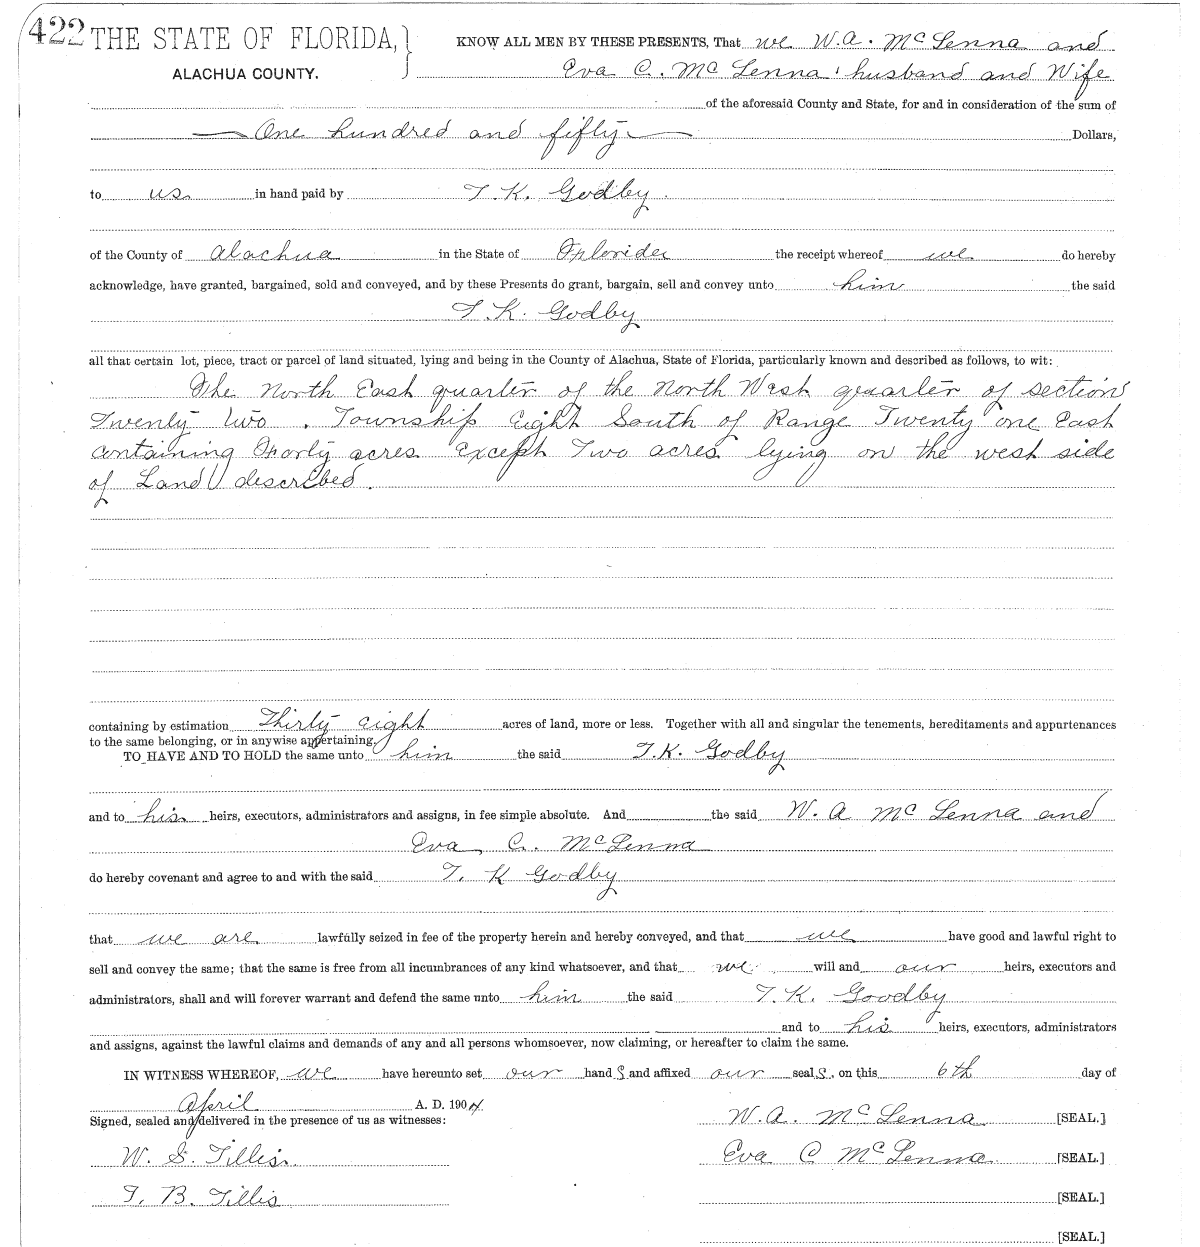 422 THE STATE OF FLORIDA,
ALACHUA COUNTY.
KNOW ALL MEN BY THESE PRESENTS, That we W. A. McLenna and
Eva C. McLenna, husband and Wife
of the aforesaid County and State, for and in consideration of the sum of
One hundred and fifty Dollars,
to us in hand paid by T. K. Godby.
of the County of Alachua in the State of Florida the receipt whereof we do hereby
acknowledge, have granted, bargained, sold and conveyed, and by these Presents do grant, bargain, sell and convey unto him the said
T. K. Godby
all that certain lot, piece, tract or parcel of land situated, lying and being in the County of Alachua, State of Florida, particularly known and described as follows, to wit:
The North East quarter of the North West quarter of section
Twenty two. Township Eight South of Range Twenty one East
containing Forty acres Except Two acres lying on the west side
of Land described.
containing by estimation Thirty eight acres of land, more or less. Together with all and singular the tenements, hereditaments and appurtenances
to the same belonging, or in anywise appertaining,
TO HAVE AND TO HOLD the same unto him the said T. K. Godby
and to his heirs, executors, administrators and assigns, in fee simple absolute. And the said W. A McLenna and
Eva C. McLenna
do hereby covenant and agree to and with the said T. K Godby
that we are lawfully seized in fee of the property herein and hereby conveyed, and that we have good and lawful right to
sell and convey the same; that the same is free from all incumbrances of any kind whatsoever, and that we will and our heirs, executors and
administrators, shall and will forever warrant and defend the same unto him the said T. K. Goodby
and to his heirs, executors, administrators
and assigns, against the lawful claims and demands of any and all persons whomsoever, now claiming, or hereafter to claim the same.
IN WITNESS WHEREOF, we have hereunto set our hand S and affixed our seal S, on this 6th day of
April A. D. 1904.
Signed, sealed and delivered in the presence of us as witnesses:
W. A. McLenna [SEAL.]
W. S. Tillis.
Eva C McLenna [SEAL.]
T. B. Tillis
[SEAL.]
[SEAL.]